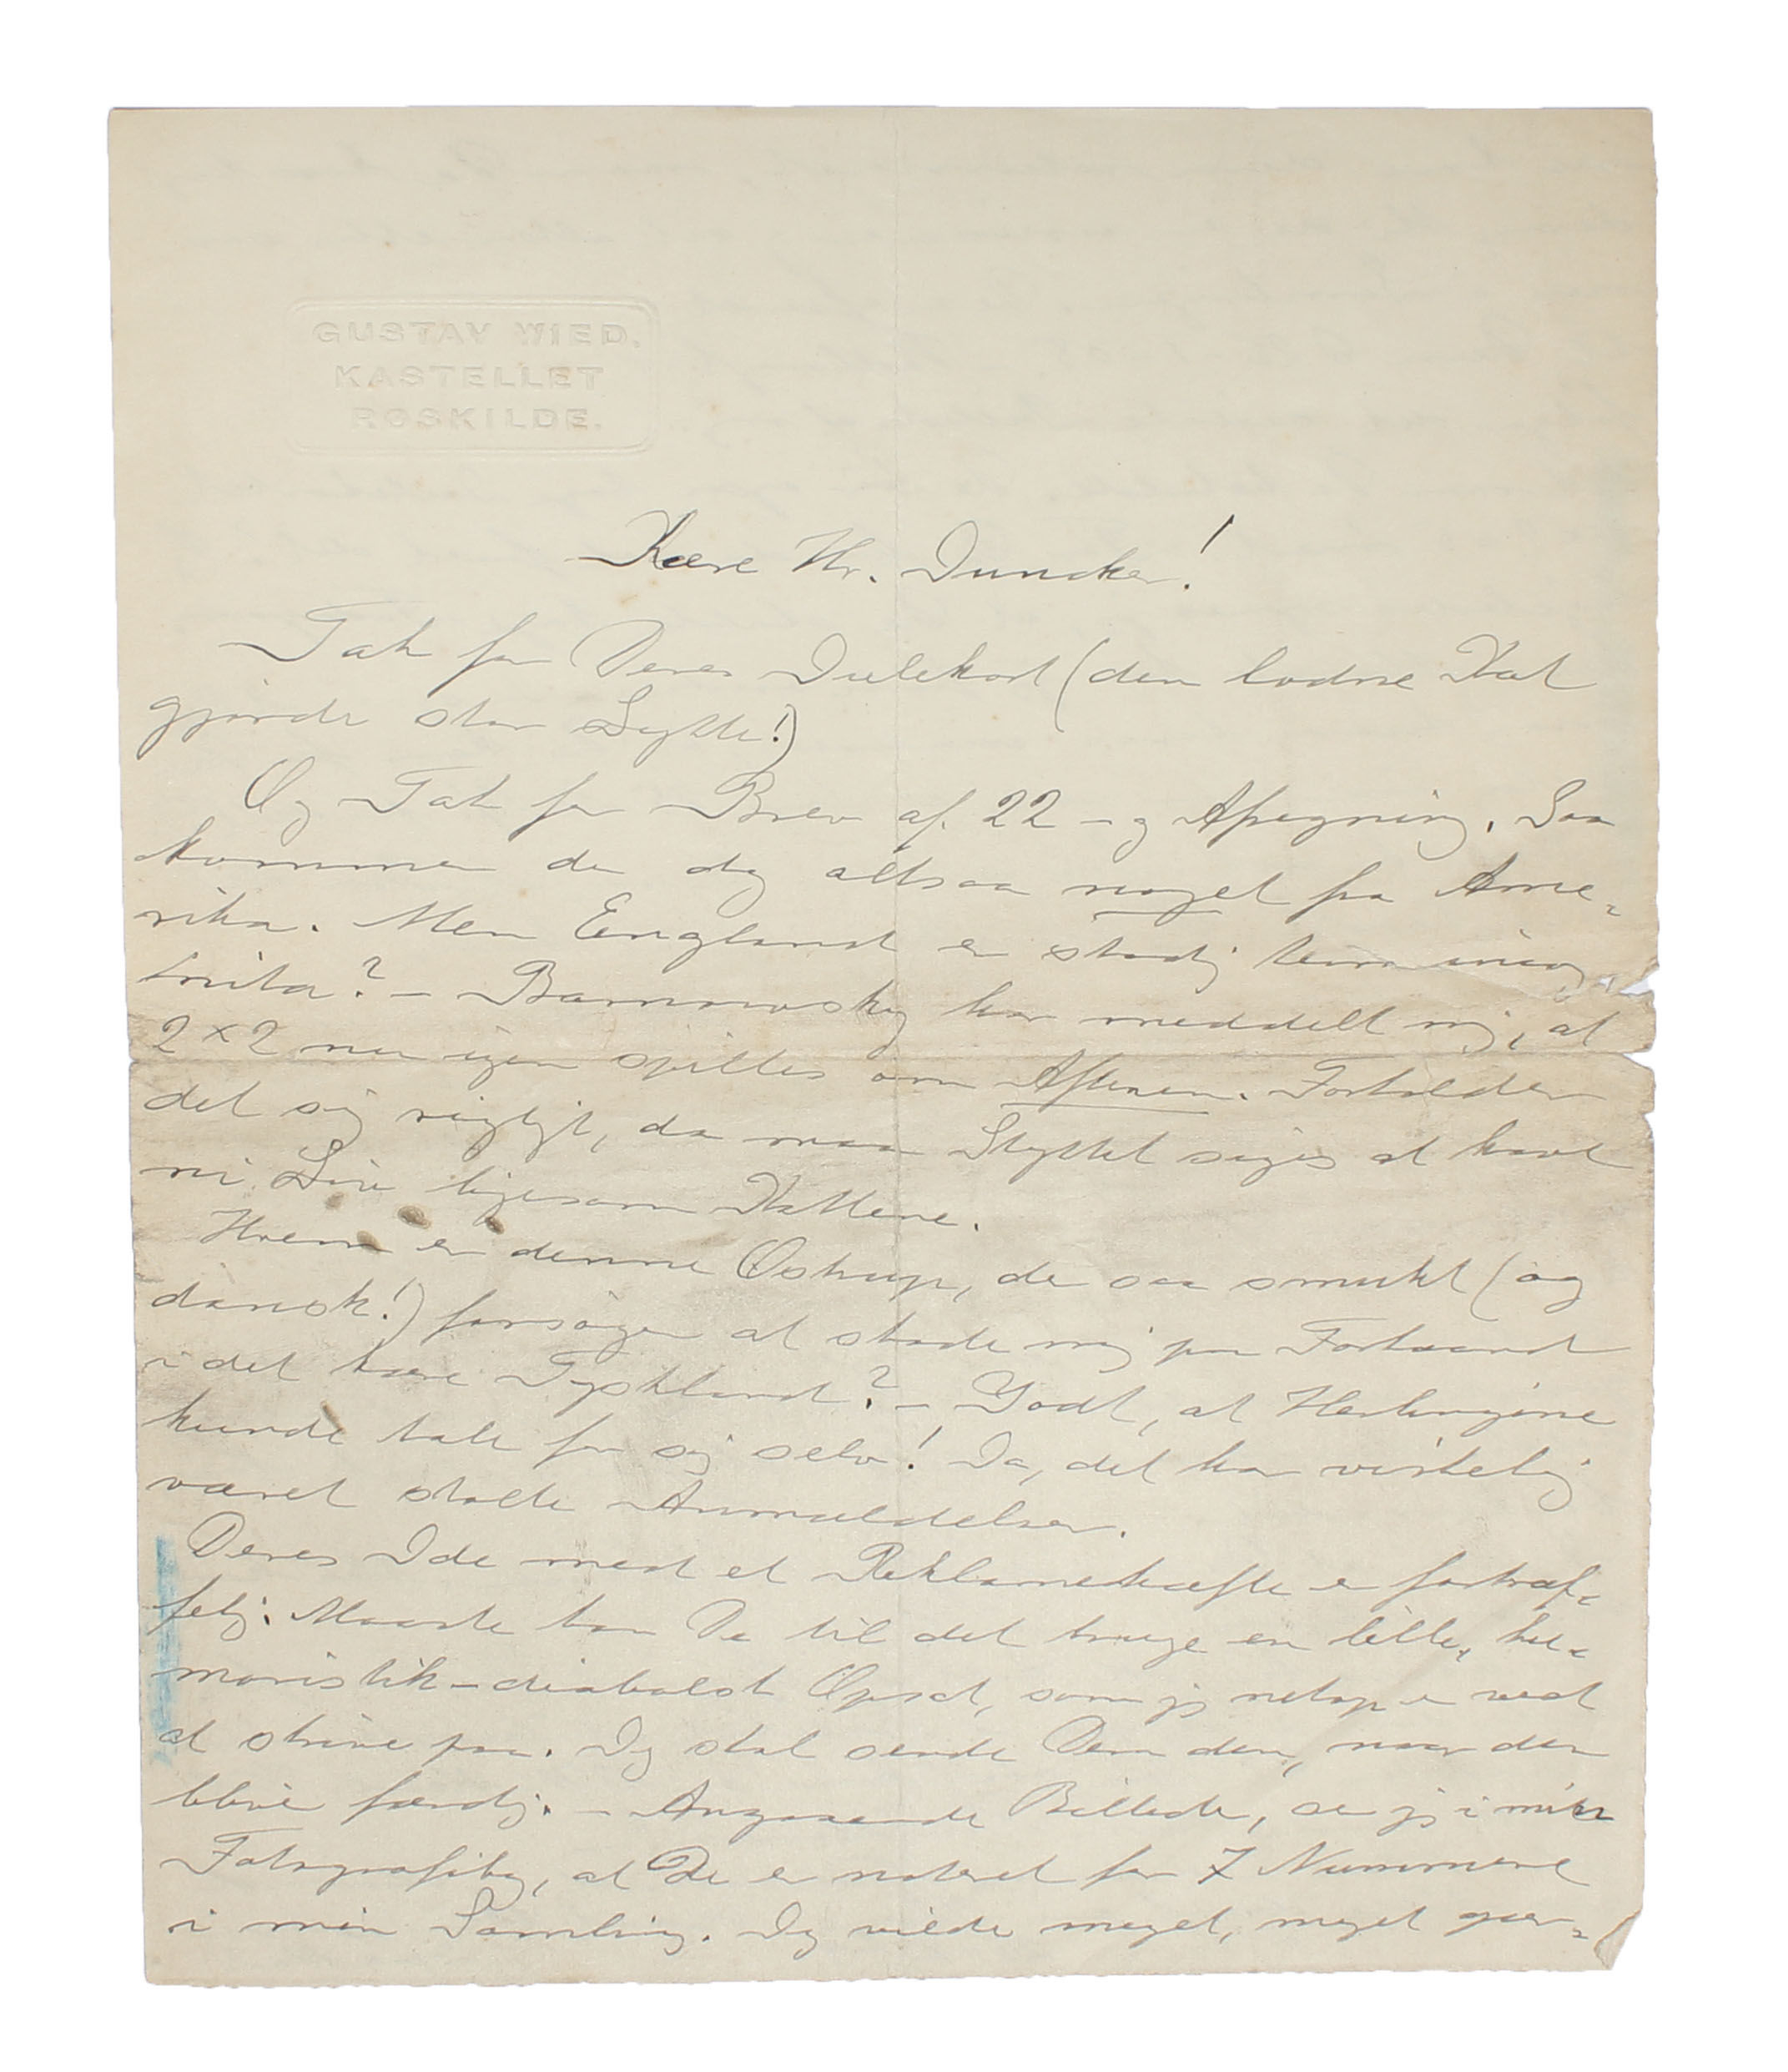 GUSTAV WIED.
KASTELLET
ROSKILDE.
Kære Hr. Duncker!
Tak for Deres Julekort (den lodne Kat
gjorde stor Lykke!)
Og Tak for Brev af 22 - og Afregning. Saa
kommer der dog altsaa noget fra Ame-
rika. Men England er stadig terra incog-
nita? - Barnowsky har meddelt mig, at
2 x 2 nu igen spilles om Aftenen. Forholder
det sig rigtigt, da maa Stykket siges at have
ni Liv ligesom Kattene.
Hvem er denne Østrup, der saa smukt (og
dansk!) forsøger at skade mig paa Forhaand
i det kære Tyskland? - Godt, at
kunde tale for sig selv! Ja, det har virkelig
været stolte Anmeldelser.
Deres Ide med et Reklamehæfte er fortræf-
felig. Maaske kan De til det bruge en lille, hu-
moristisk-diabolsk Opsat, som jeg netop er ved
at skrive paa. Jeg skal sende Dem den, naar den
bliver færdig. - Angaaende Billede, ser jeg i min
Fotografibog, at De er noteret for 7 Nummere
i min Samling. Jeg vilde meget, meget gær-